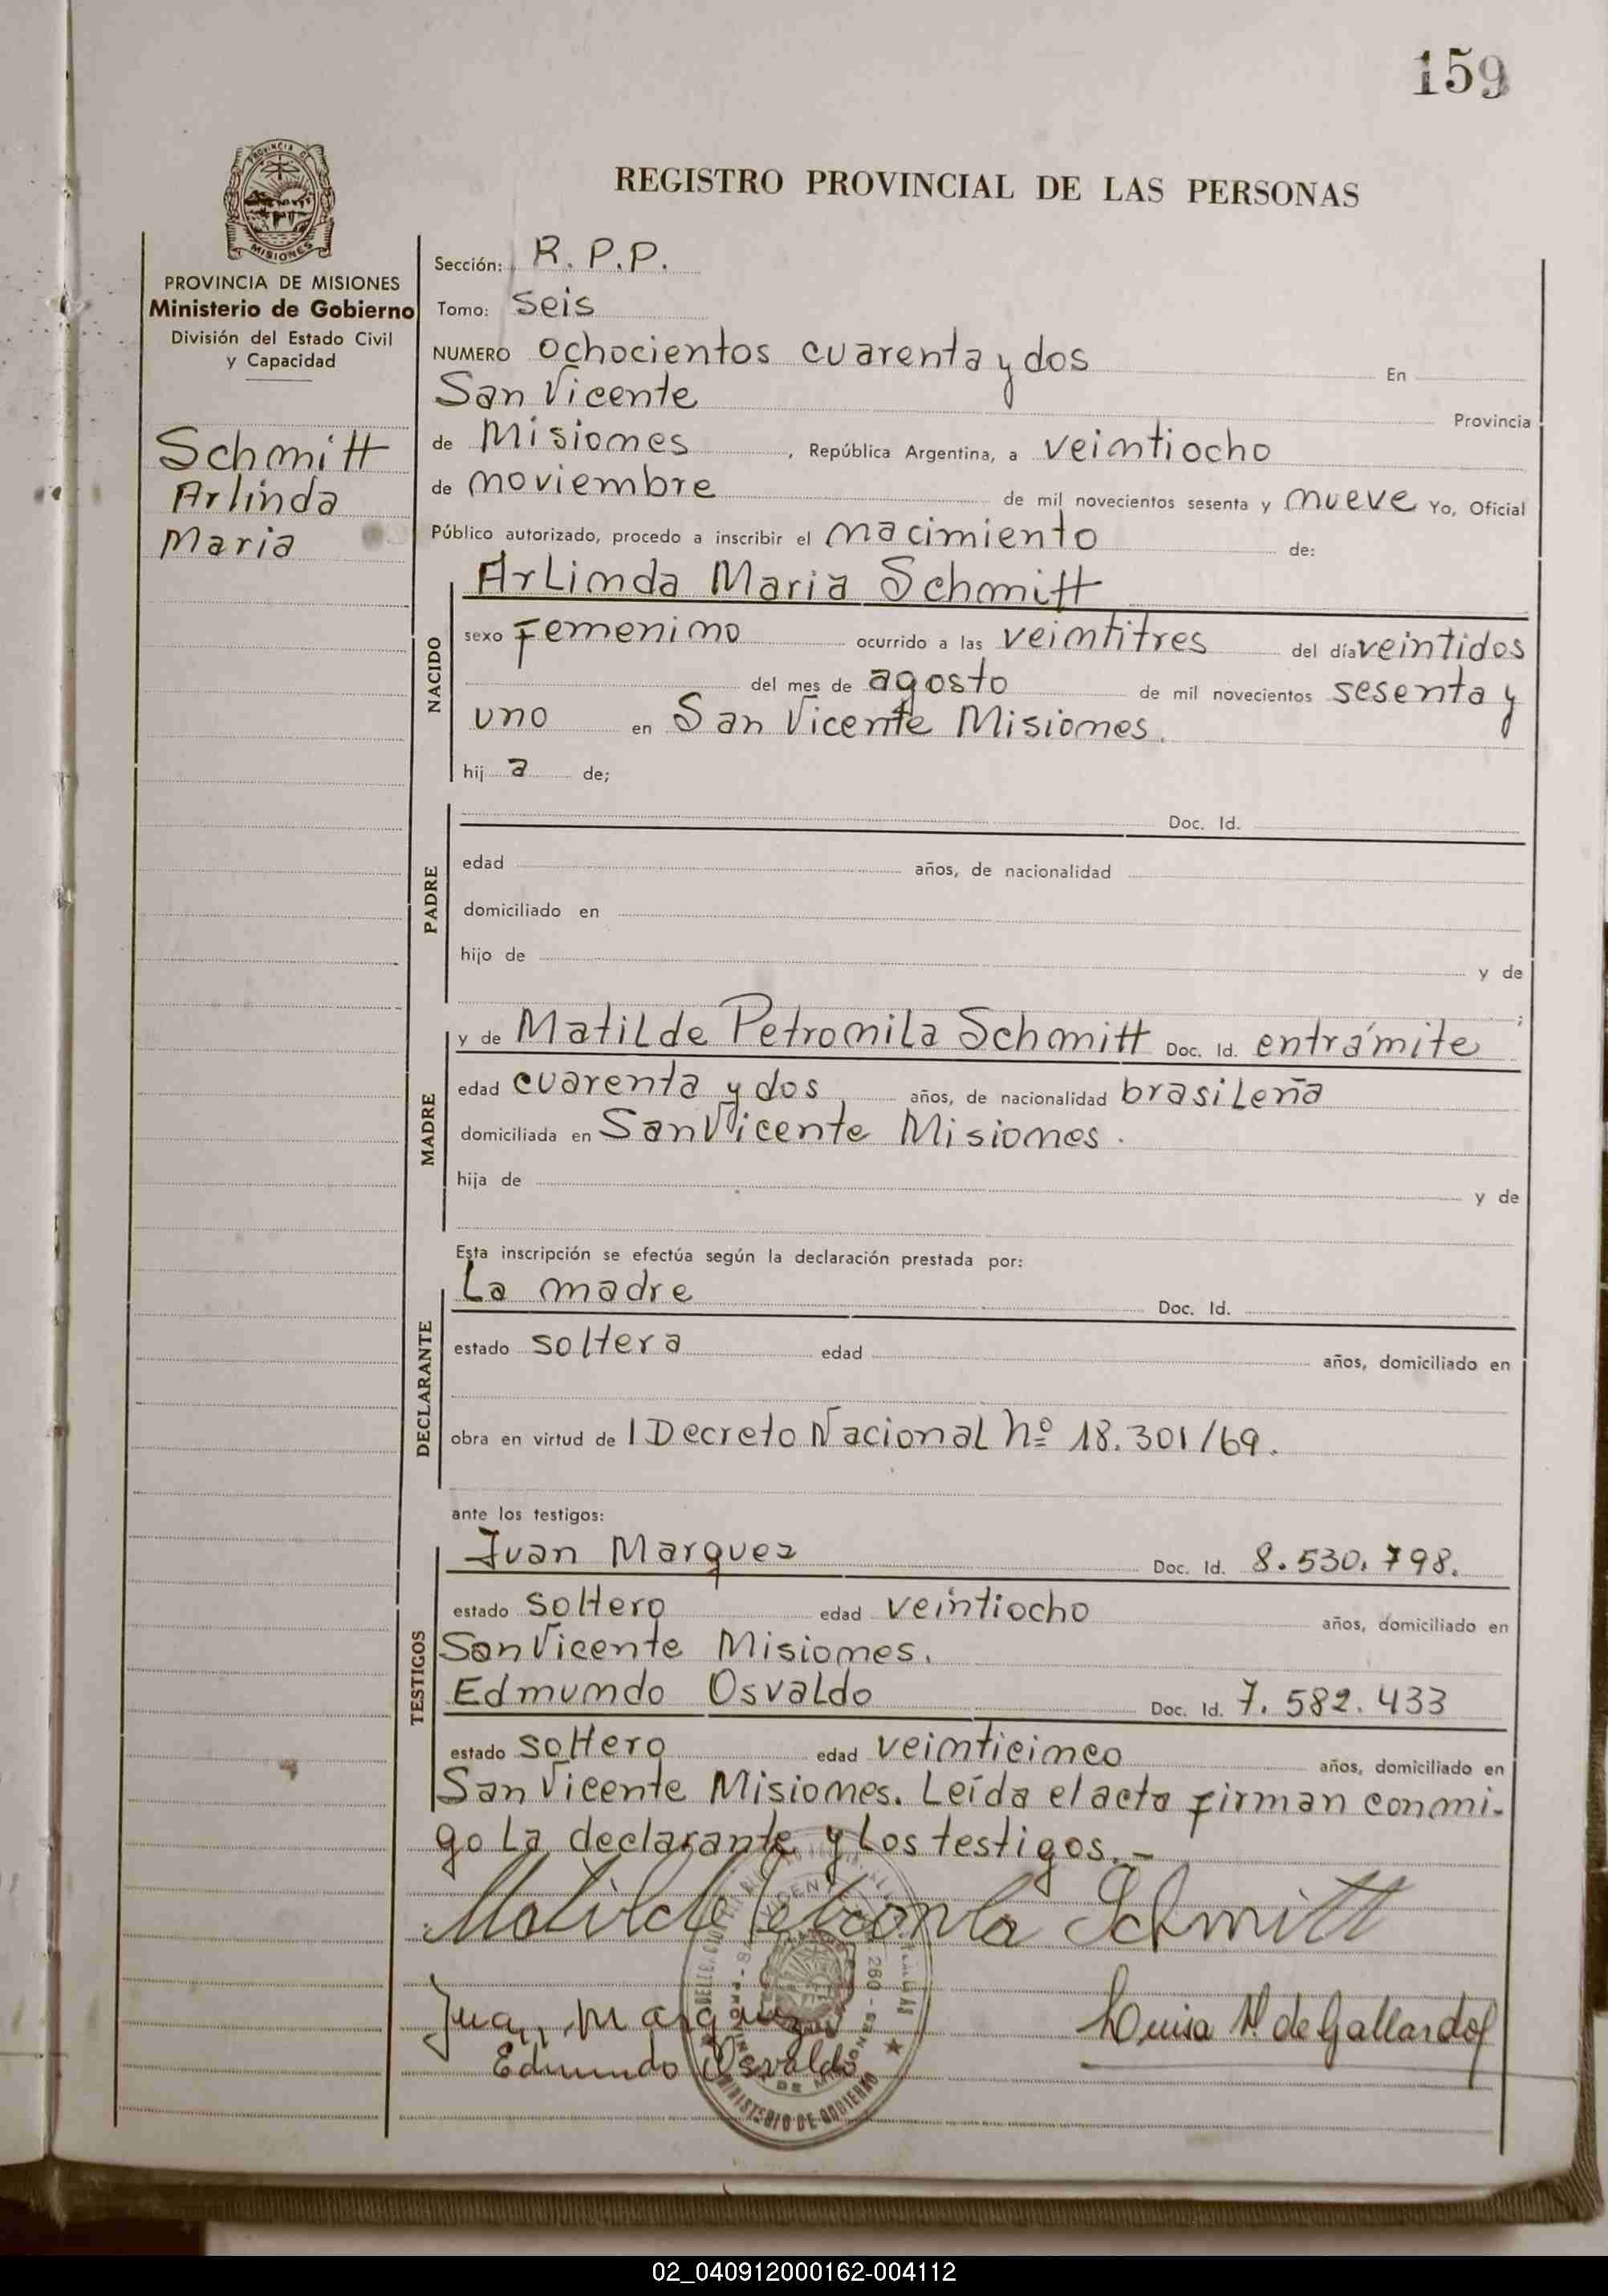 159
PROVINCIA DE
MISIONES
REGISTRO PROVINCIAL DE LAS PERSONAS
PROVINCIA DE MISIONES
Ministerio de Gobierno
División del Estado Civil
y Capacidad
Schmitt
Arlinda
Maria
Sección: R. P. P.
Tomo: Seis
NUMERO ochocientos cuarenta y dos En
San Vicente Provincia
de Misiones, República Argentina, a veintiocho
de noviembre de mil novecientos sesenta y nueve Yo, Oficial
Público autorizado, procedo a inscribir el nacimiento de:
NACIDO
Arlinda Maria Schmitt
sexo Femenino ocurrido a las veintitres del día veintidos
del mes de agosto de mil novecientos sesenta y
uno en San Vicente Misiones.
hij a de;
PADRE
Doc. Id.
edad años, de nacionalidad
domiciliado en
hijo de y de
;
MADRE
y de Matilde Petronila Schmitt Doc. Id. entrámite
edad cuarenta y dos años, de nacionalidad brasileña
domiciliada en San Vicente Misiones.
hija de y de
Esta inscripción se efectúa según la declaración prestada por:
DECLARANTE
La madre Doc. Id.
estado soltera edad años, domiciliado en
obra en virtud de l Decreto Nacional Nº 18.301/69.
ante los testigos:
TESTIGOS
Juan Marquez Doc. Id. 8.530.798.
estado soltero edad veintiocho años, domiciliado en
San Vicente Misiones.
Edmundo Osvaldo Doc. Id. 7.582.433
estado soltero edad veinticinco años, domiciliado en
San Vicente Misiones. Leída el acta firman conmi-
go la declarante y los testigos.-
Matilde Petronila Schmitt
Juan Marquez
Luisa N. de Gallardo
Edmundo Osvaldo
MINISTERIO DE GOBIERNO
02_040912000162-004112